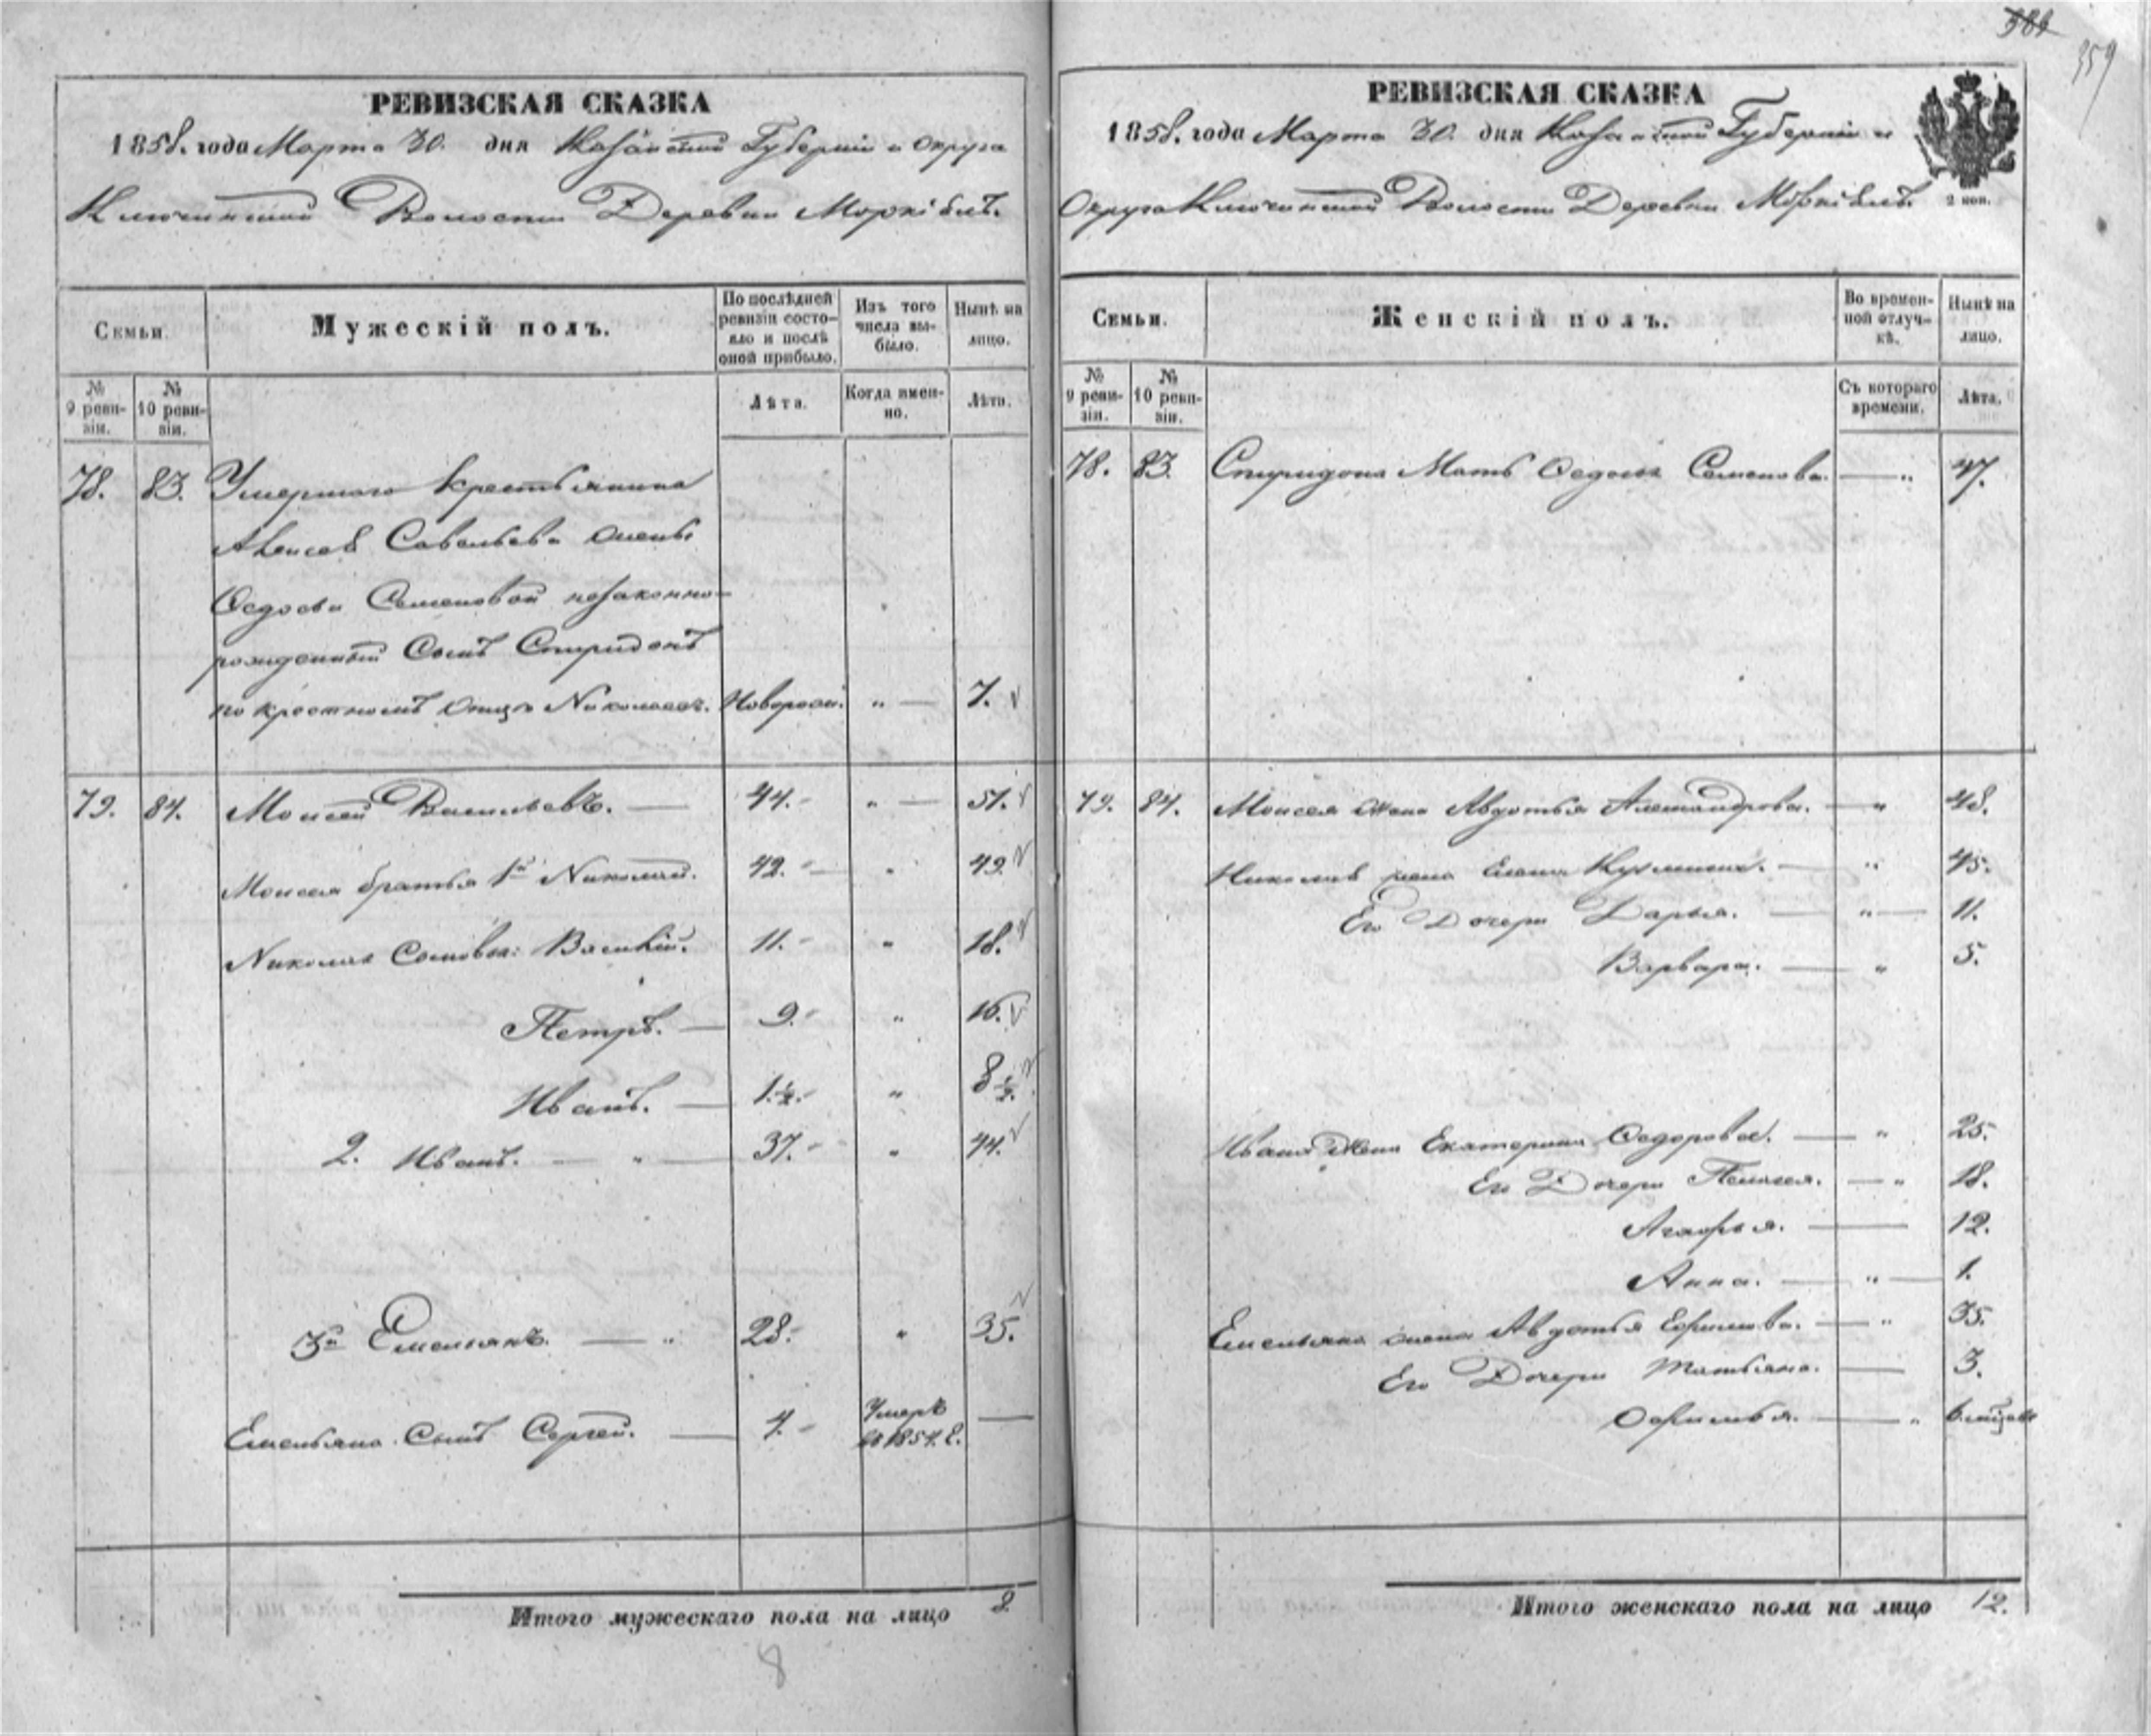 РЕВИЗСКАЯ СКАЗКА
1858. года Марта 30. дня Казанской Губерніи и Округа
Ключинской Волости Деревни
Семьи.
Мужескій полъ.
По послѣдней ревизіи состояло и послѣ оной прибыло.
Изъ того числа выбыло.
Нынѣ на лицо.
№ 9 ревизіи.
№ 10 ревизіи.
Лѣта.
Когда именно.
Лѣта.
78. 83. Умершаго Крестьянина
Алексея Савельева жены
Федосьи Семеновой незаконно-
рожденный Сынъ Спиридонъ
по крестному отцу Николаевъ. Новорож. " — 7.
79. 84. Моисей Васильевъ. — 44. " — 51.
Моисея братья 1й Николай. 42. " 49.
Николая Сыновья: Василій. 11. " 18.
Петръ. — 9. " 16.
Иванъ. — 1 ½. " 8 ½.
2. Иванъ. — " — 37. " 44.
3й Емельянъ. — " 28. " 35.
Емельяна Сынъ Сергей. — 4. Умеръ въ 1854. г. —
Итого мужескаго пола на лицо 8
8
381
359
РЕВИЗСКАЯ СКАЗКА
1858. года Марта 30. дня Казанской Губерніи и
Округа Ключинской Волости Деревни
2 коп.
Семьи.
Женскій полъ.
Во временной отлучкѣ.
Нынѣ на лицо.
№ 9 ревизіи.
№ 10 ревизіи.
Съ котораго времени.
Лѣта.
78. 83. Спиридона Мать Федосья Семенова. — " 47.
79. 84. Моисея жена Авдотья Александрова. — " 48.
Николая жена Елена Кузмина. — " 45.
Его Дочери Дарья. — " — 11.
Варвара. — " 5.
Ивана Жена Екатерина Федорова. — " 25.
Его Дочери Пелагея. — " 18.
Агафья. — 12.
Анна. — " — 1.
Емельяна жена Авдотья Ефимова. — " 35.
Его Дочери Татьяна. — 3.
Офимья. — " 6. мѣсяц
Итого женскаго пола на лицо 12.